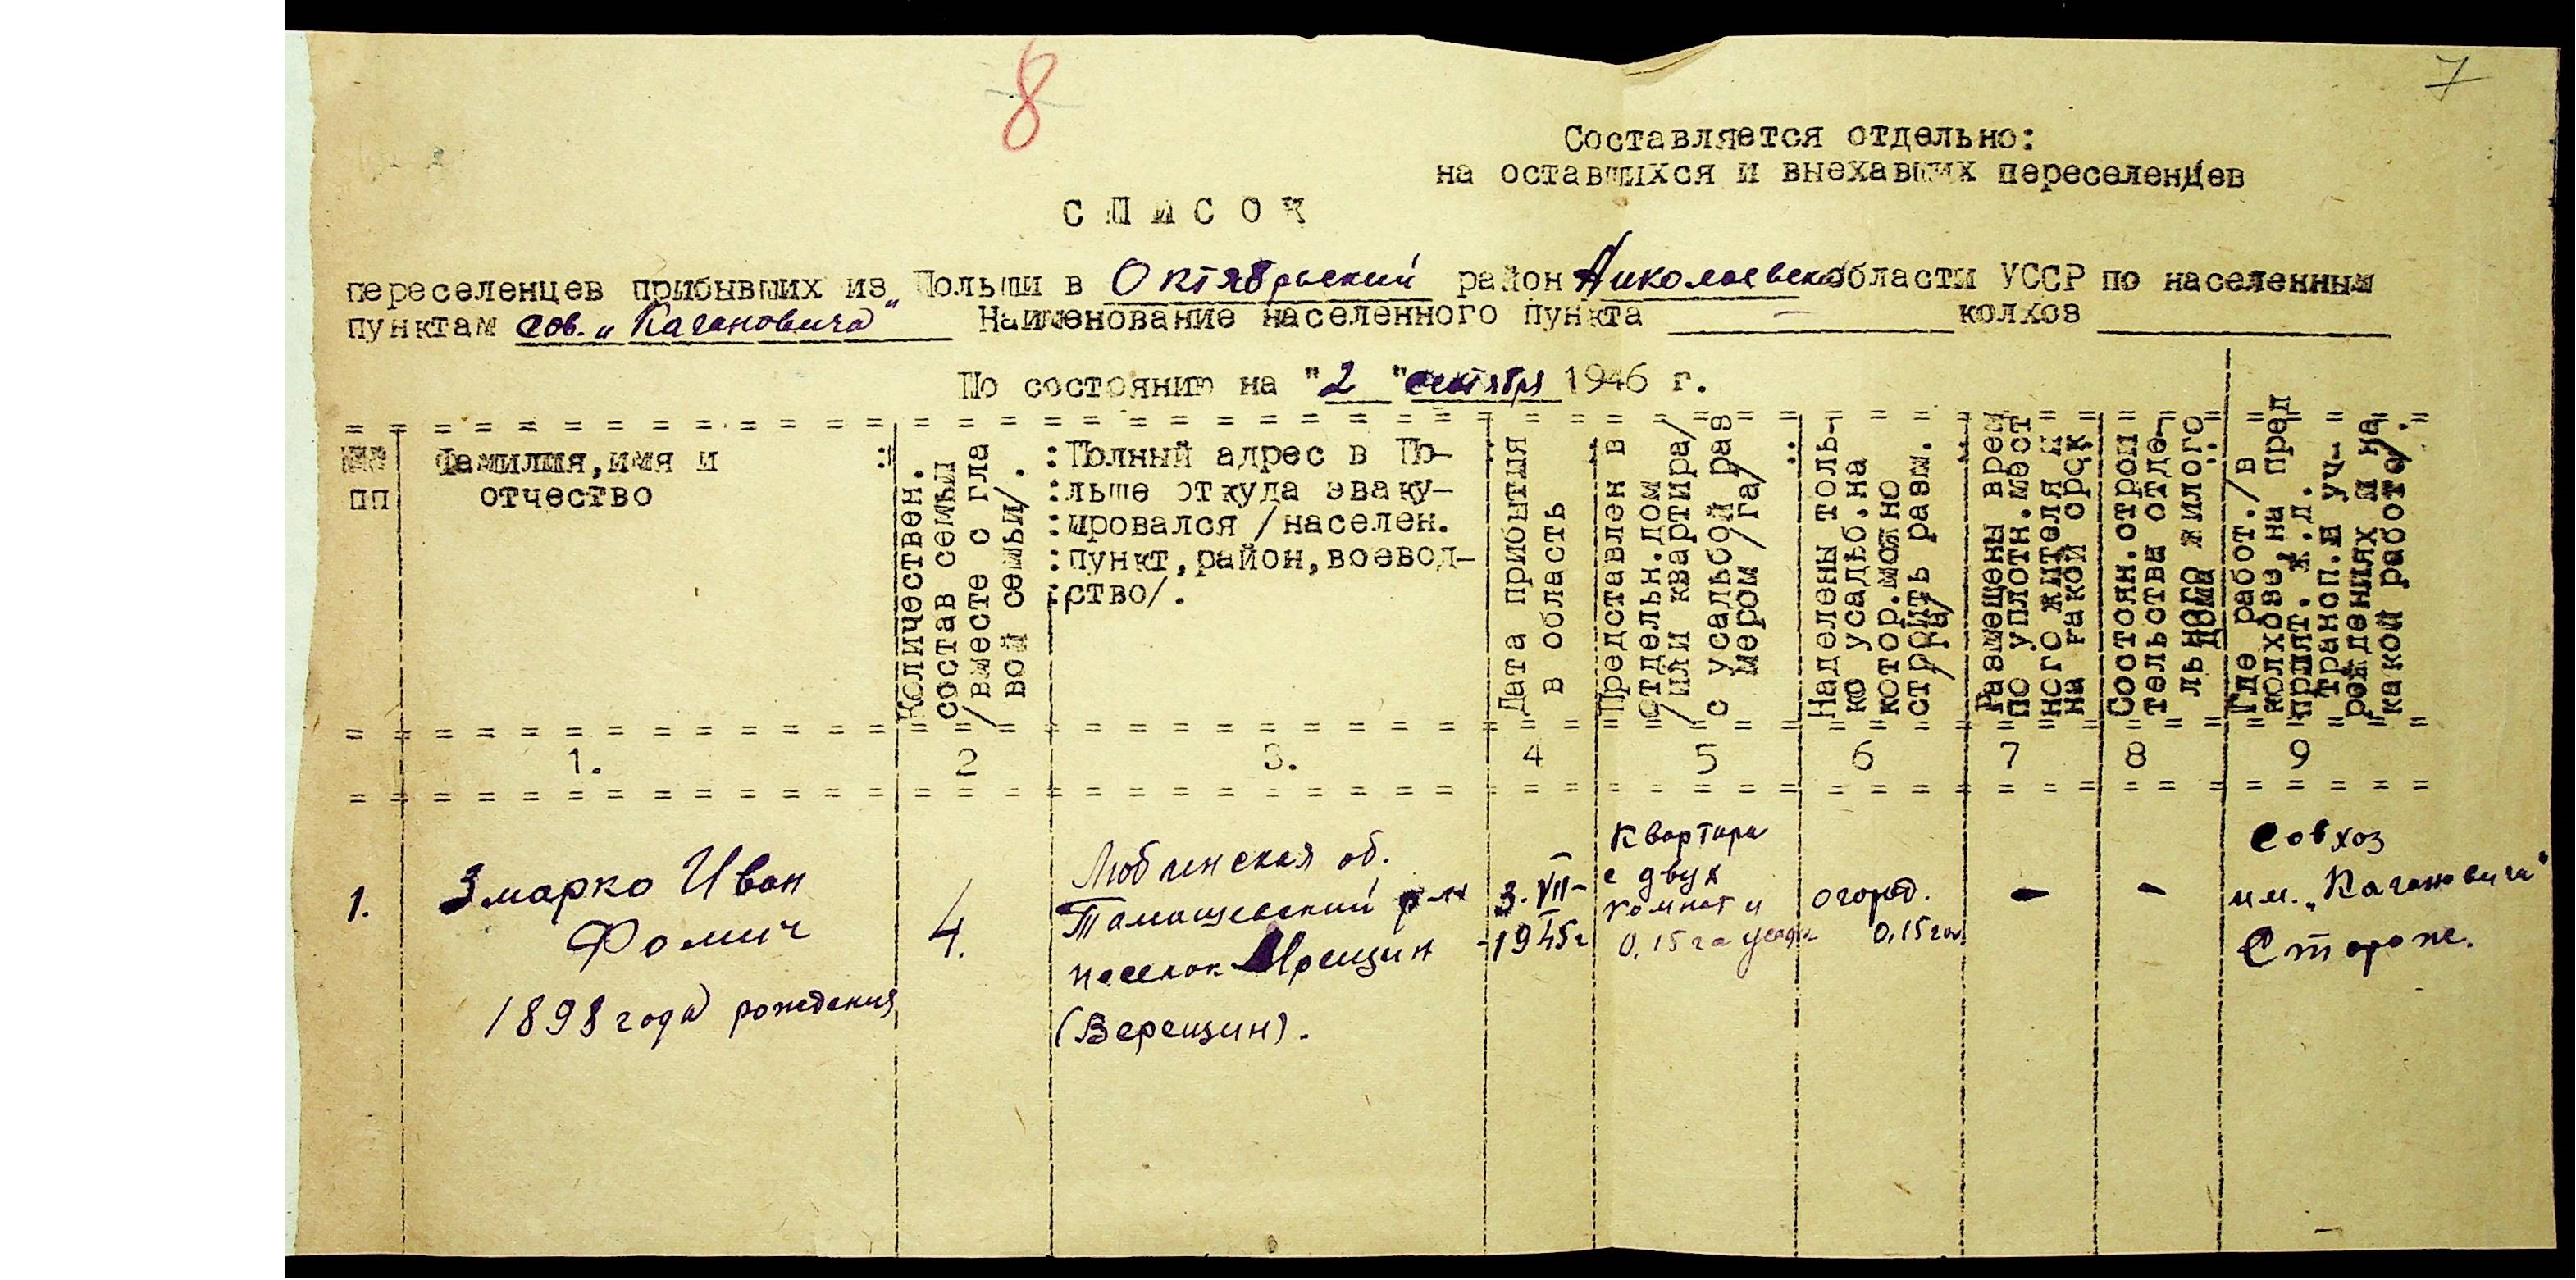 8
7
Составляется отдельно:
на оставшихся и внехавших переселенцев
С П И С О К
переселенцев прибывших из Польши в Октябрьский район Николаевской области УССР по населенным
пунктам сов. „Кагановича" Наименование населенного пункта — колхов
По состоянию на "2" сентября 1946 г.
№№
пп
Фамилия, имя и
отчество
Количествен.
состав семьи
/вместе с гла
вой семьи/.
:Полный адрес в По-
:льше откуда эваку-
:ировался /населен.
:пункт, район, воевод-
:ство/.
Дата прибытия
в область
Представлен в
отдельн.дом
/или квартира/
с усадьбой раз
мером /га/
Наделены толь-
ко усадьб.на
котор.можно
строить разм.
/га/
Размещены врем
по уплотн.мест
ного жителя и
на какой срок
Состоян.строи
тельства отде-
льного жилого
дома
Где работ./в
колхозе, на пред
прият. ж.д.
трансп.и уч-
реждениях и на
какой работе/.
1. 2 3. 4 5 6 7 8 9
1.
Змарко Иван
Фомич
1898 года рождения
4.
Люблинская об.
Тамашевский р-н
поселок Врещин
(Верещин).
3. VII-
-1945г
Квартира
с двух
комнат и
0,15 га
огород.
0,15 га
-
-
Совхоз
им. „Кагановича"
Сторож.